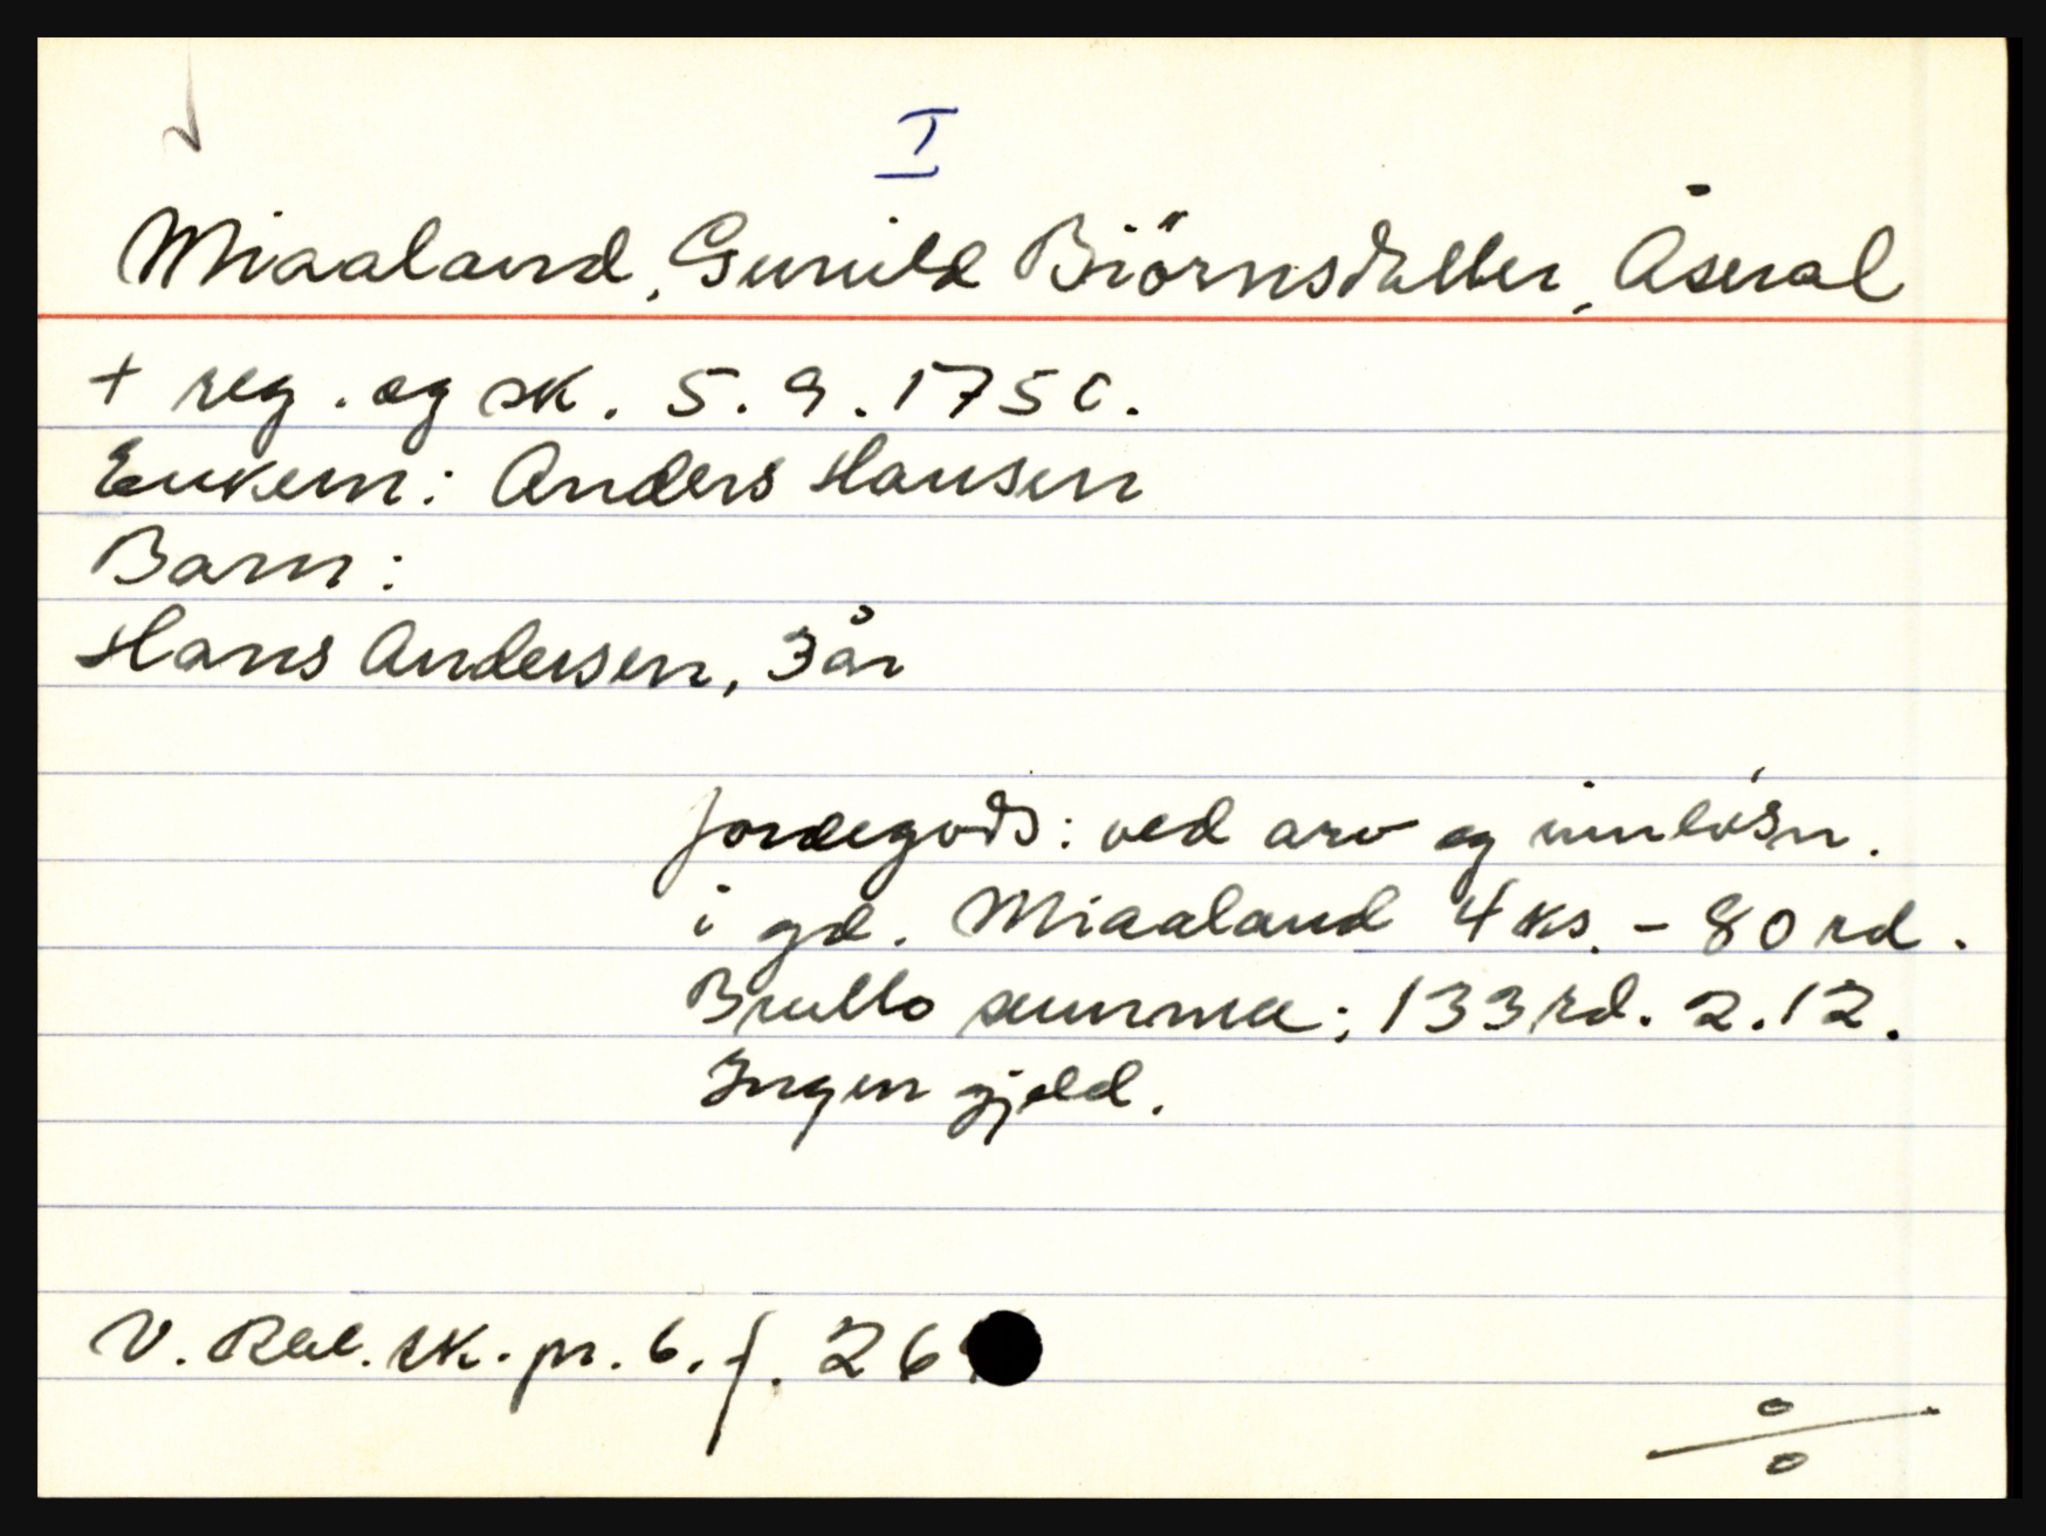 I
Miaaland, Gunild Biörnsdatter, Åseral
+ reg. og sk. 5.9.1750.
Enkem: Anders Hansen
Barn:
Hans Andersen, 3 år
Jordegods: ved arv og innløsn.
i gd. Miaaland 4 ks. - 80 rd.
Brutto summa: 133 rd. 2.12.
Ingen gjeld.
V. Råb. sk. pr. 6. f. 26